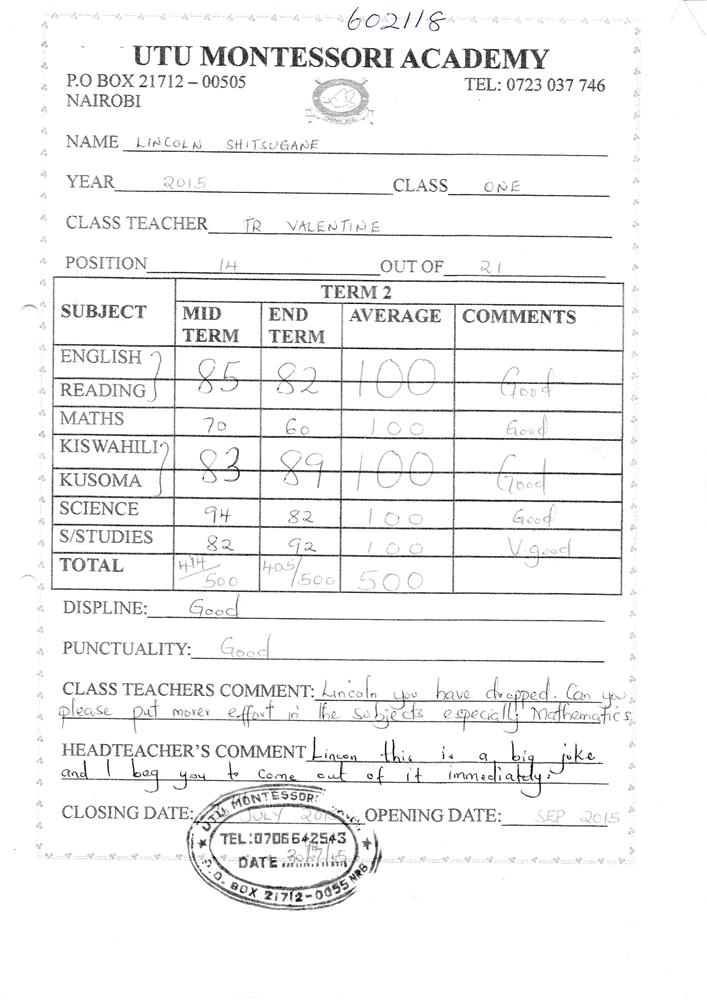 602118
UTU MONTESSORI ACADEMY
P.O BOX 21712 – 00505 TEL: 0723 037 746
NAIROBI
NAME LINCOLN SHITSUGANE
YEAR 2015 CLASS ONE
CLASS TEACHER TR VALENTINE
POSITION 14 OUT OF 21
TERM 2
SUBJECT MID TERM END TERM AVERAGE COMMENTS
ENGLISH
READING 85 82 100 Good
MATHS 70 60 100 Good
KISWAHILI
KUSOMA 83 89 100 Good
SCIENCE 94 82 100 Good
S/STUDIES 82 92 100 V.good
TOTAL 414/500 405/500 500
DISPLINE: Good
PUNCTUALITY: Good
CLASS TEACHERS COMMENT: Lincoln you have dropped. Can you
please put morer effort in the subjects especially Mathematics
HEADTEACHER'S COMMENT Lincon this is a big joke
and I beg you to come out of it immediately.
CLOSING DATE: JULY 2015 OPENING DATE: SEP 2015
UTU MONTESSORI
TEL:0706642543
DATE 30/7/15
P.O. BOX 21712-0055 NRB